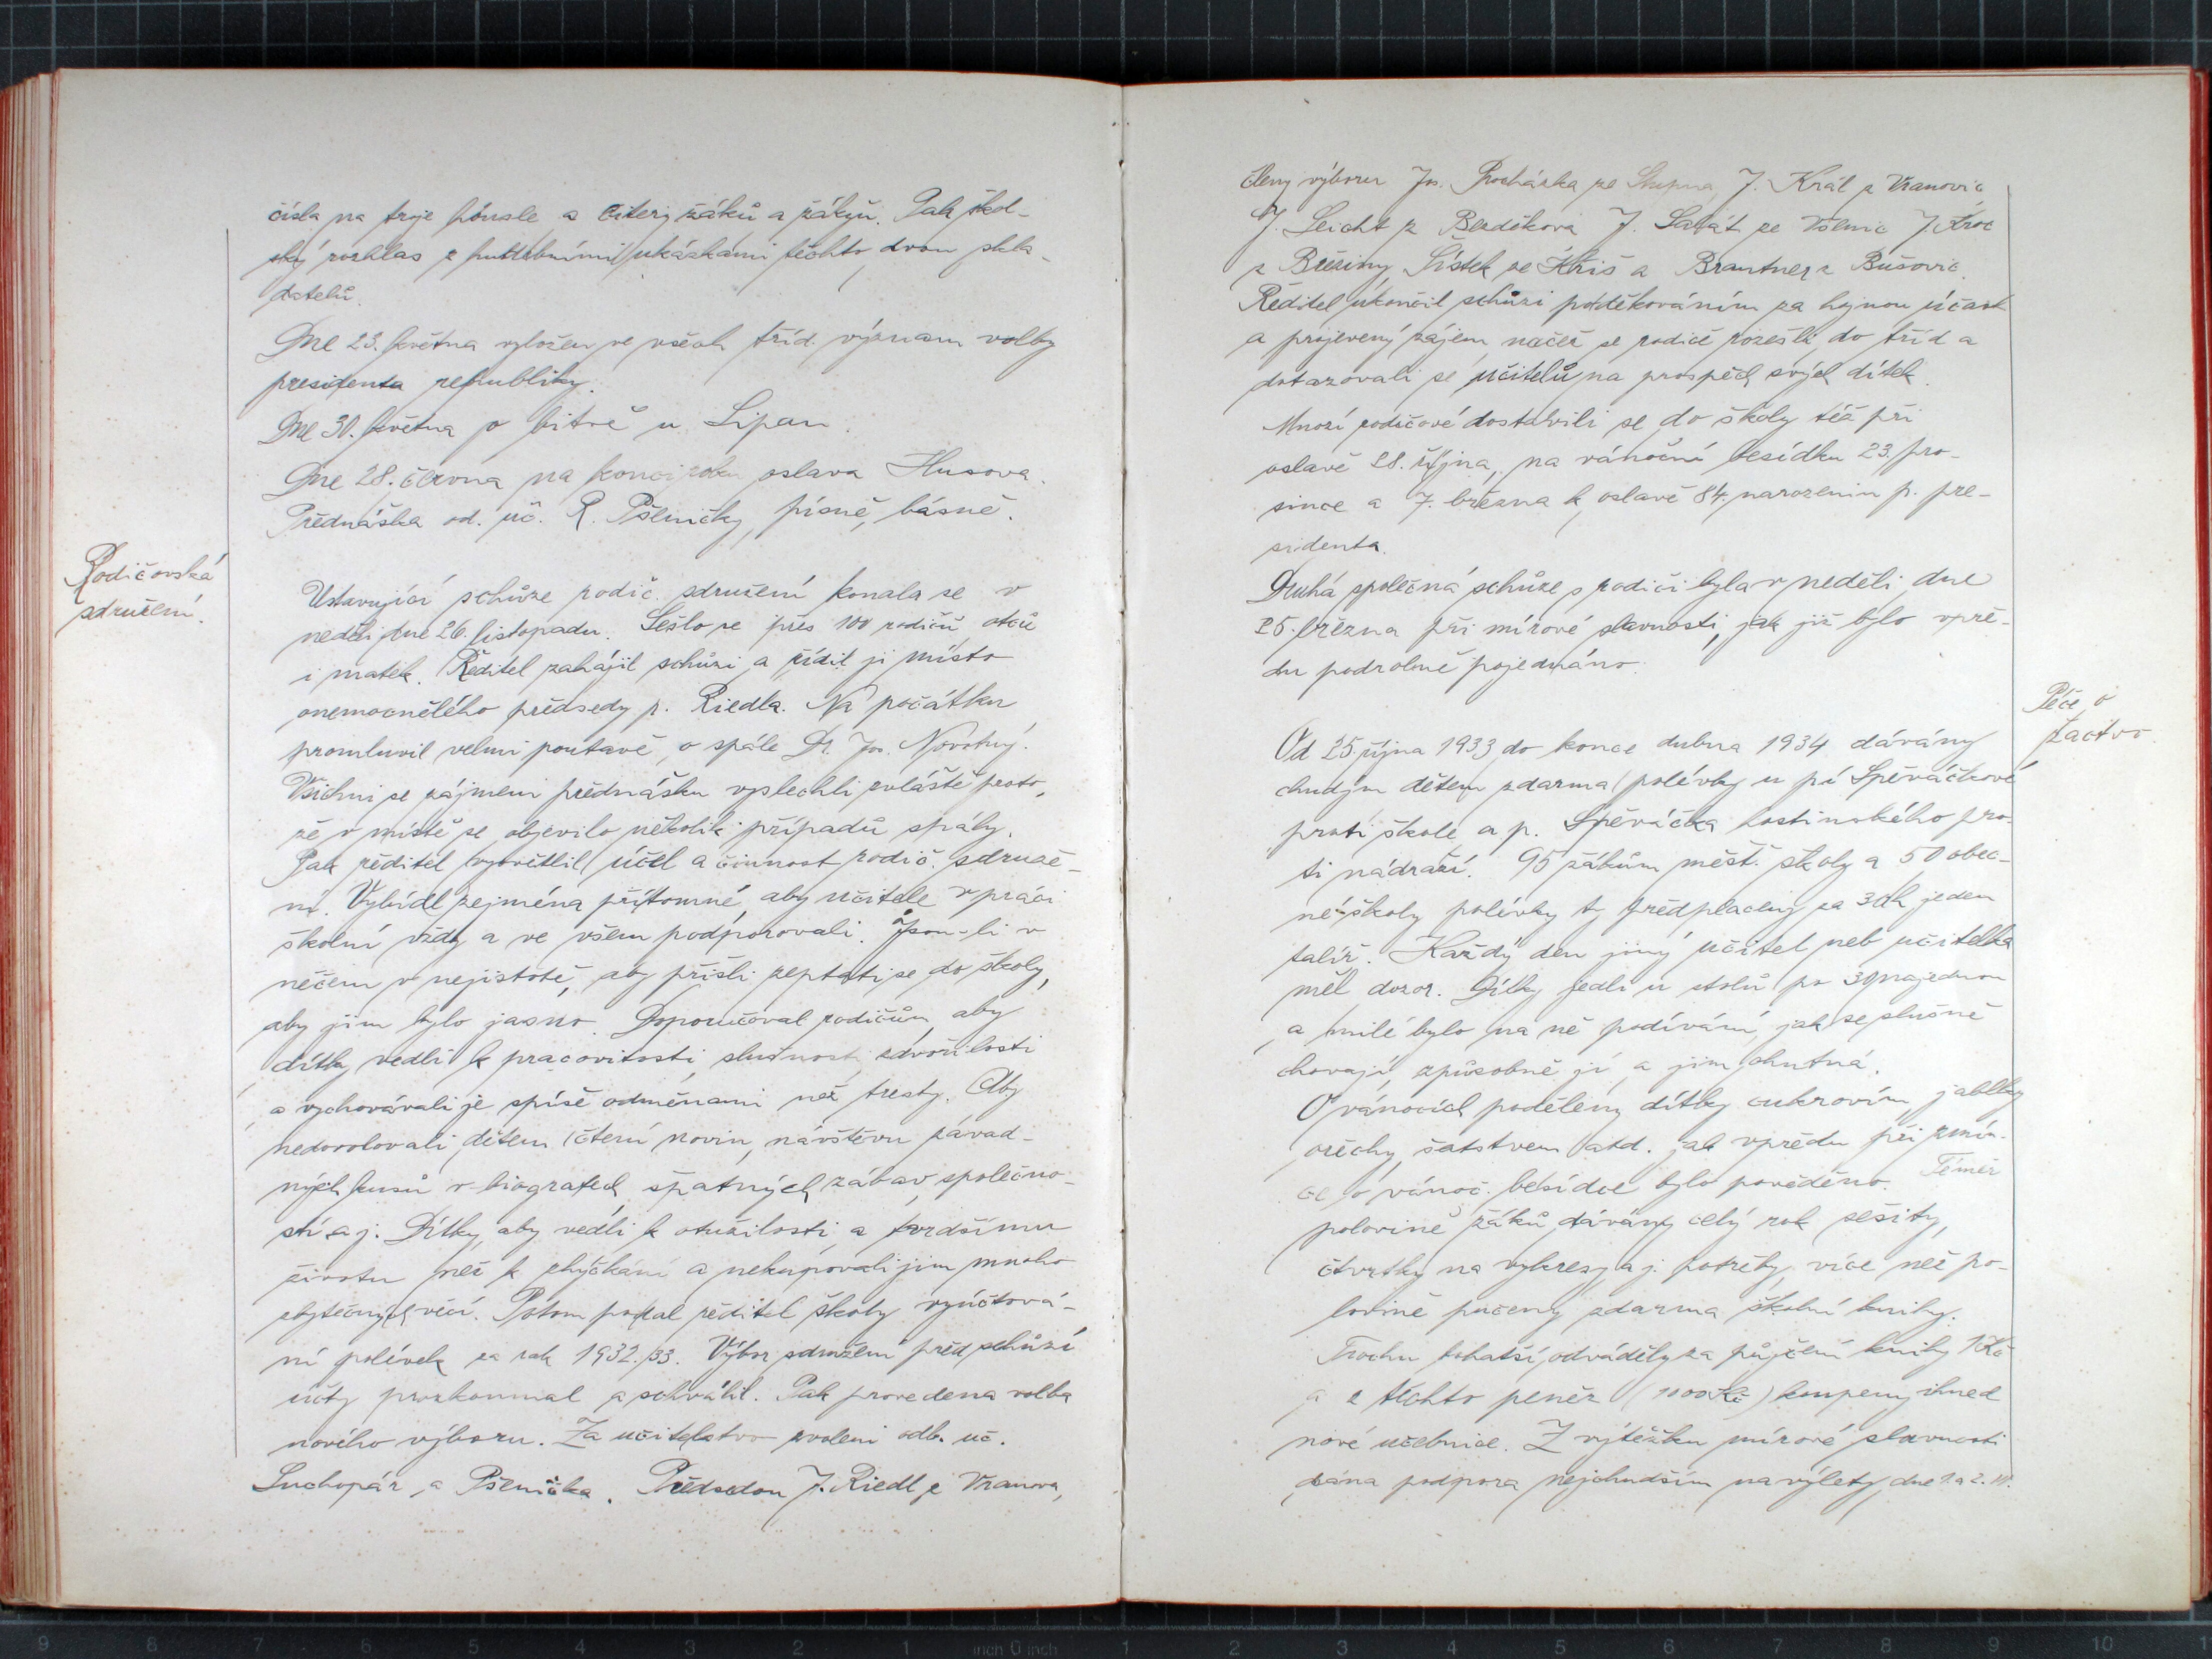 čísla na troje housle a citery žáků a žákyň. Pak škol-
ský rozhlas s hudebními ukázkami těchto dvou skla-
datelů.
Dne 23. května vyložen ve všech tříd. význam volby
presidenta republiky.
Dne 30. května o bitvě u Lipan.
Dne 28. června na konci roku oslava Husova.
Přednáška od. uč. R. Pšeničky, písně, básně.
Rodičovská
sdružení.
Ustavující schůze rodič. sdružení konala se v
neděli dne 26. listopadu. Sešlo se přes 100 rodičů, otců
i matek. Ředitel zahájil schůzi a řídil ji místo
onemocnělého předsedy p. Riedla. Na počátku
promluvil velmi poutavě o spále Dr. Jos. Novotný.
Všichni se zájmem přednášku vyslechli zvláště proto,
že v místě se objevilo několik případů spály.
Pak ředitel vysvětlil účel a činnost rodič. sdruže-
ní. Vybídl zejména přítomné, aby učitele v práci
školní vždy a ve všem podporovali. Jsou-li v
něčem v nejistotě, aby přišli zeptati se do školy,
aby jim bylo jasno. Doporučoval rodičům, aby
dítky vedli k pracovitosti, slušnosti, zdvořilosti
a vychovávali je spíše odměnami než tresty. Aby
nedovolovali dětem čtení novin, návštěvu závad-
ných kusů v biografech, špatných zábav, společno-
stí a j. Dítky, aby vedli k otužilosti a tvrdšímu
životu než k zhýčkání a nekupovali jim mnoho
zbytečných věcí. Potom podal ředitel školy vyúčtová-
ní polévek za rok 1932./33. Výbor sdružení před schůzí
účty prozkoumal a schválil. Pak provedena volba
nového výboru. Za učitelstvo zvoleni odb. uč.
Suchopár a Pšenička. Předsedou J. Riedl z Vranova,
členy výboru Jos. Procházka ze Stupna, J. Král z Vranovic
J. Leicht z Bezděkova J. Salát ze Všenic J. Kroc
z Březiny, Lístek ze Kříš a Brantner z Bušovic.
Ředitel ukončil schůzi poděkováním za hojnou účast
a projevený zájem, načež se rodiče rozešli do tříd a
dotazovali se učitelů na prospěch svých dítek.
Mnozí rodičové dostavili se do školy též při
oslavě 28. října, na vánoční besídku 23. pro-
since a 7. března k oslavě 84. narozenin p. pre-
sidenta.
Druhá společná schůze s rodiči byla v neděli dne
25. března při mírové slavnosti, jak již bylo vpře-
du podrobně pojednáno.
Péče o
žactvo.
Od 25. října 1933 do konce dubna 1934 dávány
chudým dětem zdarma polévky u pí Spěváčkové
proti škole a p. Spěváčka hostinského pro-
ti nádraží. 95 žákům měšť. školy a 50 obec-
né školy polévky ty předplaceny za 30h jeden
talíř. Každý den jiný učitel neb učitelka
měl dozor. Dítky jedli u stolů po 30 najednou
a milé bylo na ně podívání, jak se slušně
chovají, způsobně jí a jim chutná.
O vánocích poděleny dítky cukrovím, jablky
ořechy, šatstvem atd. jak vpředu při zmín-
ce o vánoč. besídce bylo pověděno. Téměř
polovině žáků dávány celý rok sešity,
čtvrtky na výkresy a j. potřeby, více než po-
lovině půjčeny zdarma školní knihy.
Trochu bohatší odváděly za půjčení knihy 1Kč
a z těchto peněz (1000 Kč) koupeny ihned
nové učebnice. Z výtěžku mírové slavnosti
dána podpora nejchudším na výlety dne 1. a 2. VI.